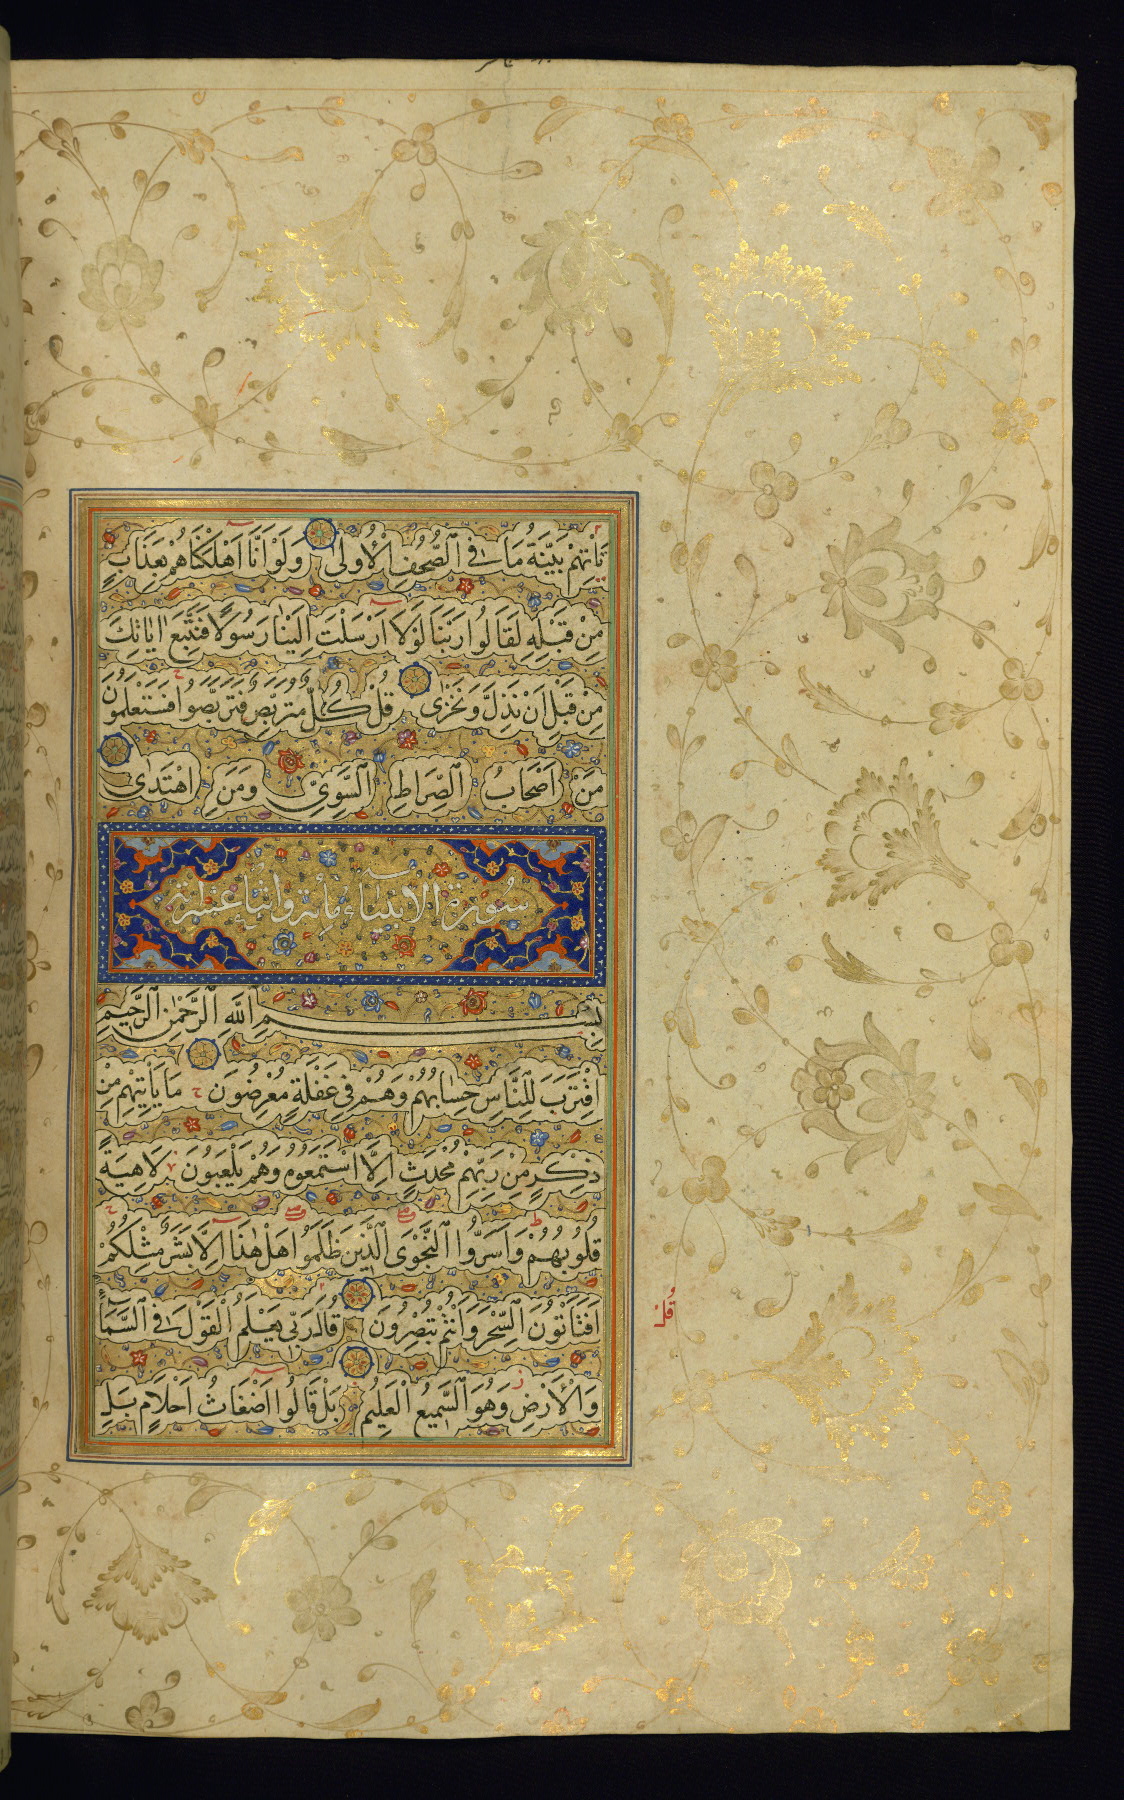 تَأْتِهِمْ بَيِّنَةُ مَا فِي ٱلصُّحُفِ الْأُولَى وَلَوْ أَنَّا اَهْلَكْنَاهُمْ بِعَذَابٍ
مِنْ قَبْلِهِ لَقَالُوا رَبَّنَا لَوْلَا اَرْسَلْتَ اِلَيْنَا رَسُولًا فَنَتَّبِعَ اٰيَاتِكَ
مِنْ قَبْلِ اَنْ نَذِلَّ وَنَخْزٰى قُلْ كُلٌّ مُتَرَبِّصٌ فَتَرَبَّصُوا فَسَتَعْلَمُونَ
مَنْ اَصْحَابُ ٱلصِّرَاطِ ٱلسَّوِيِّ وَمَنِ اهْتَدٰى
سورة الانبياء مائة واثنتا عشرة
بِسْمِ ٱللَّهِ ٱلرَّحْمٰنِ ٱلرَّحِيمِ
اقْتَرَبَ لِلنَّاسِ حِسَابُهُمْ وَهُمْ فِي غَفْلَةٍ مُعْرِضُونَ مَا يَأْتِيهِمْ مِنْ
ذِكْرٍ مِنْ رَبِّهِمْ مُحْدَثٍ اِلَّا اسْتَمَعُوهُ وَهُمْ يَلْعَبُونَ لَاهِيَةً
قُلُوبُهُمْ وَاَسَرُّوا ٱلنَّجْوَى ٱلَّذِينَ ظَلَمُوا هَلْ هٰذَا اِلَّا بَشَرٌ مِثْلُكُمْ
اَفَتَأْتُونَ ٱلسِّحْرَ وَاَنْتُمْ تُبْصِرُونَ قَالَ رَبِّي يَعْلَمُ الْقَوْلَ فِي ٱلسَّمَاءِ
وَالْأَرْضِ وَهُوَ ٱلسَّمِيعُ الْعَلِيمُ بَلْ قَالُوا اَضْغَاثُ اَحْلَامٍ بَلِ
قُلْ